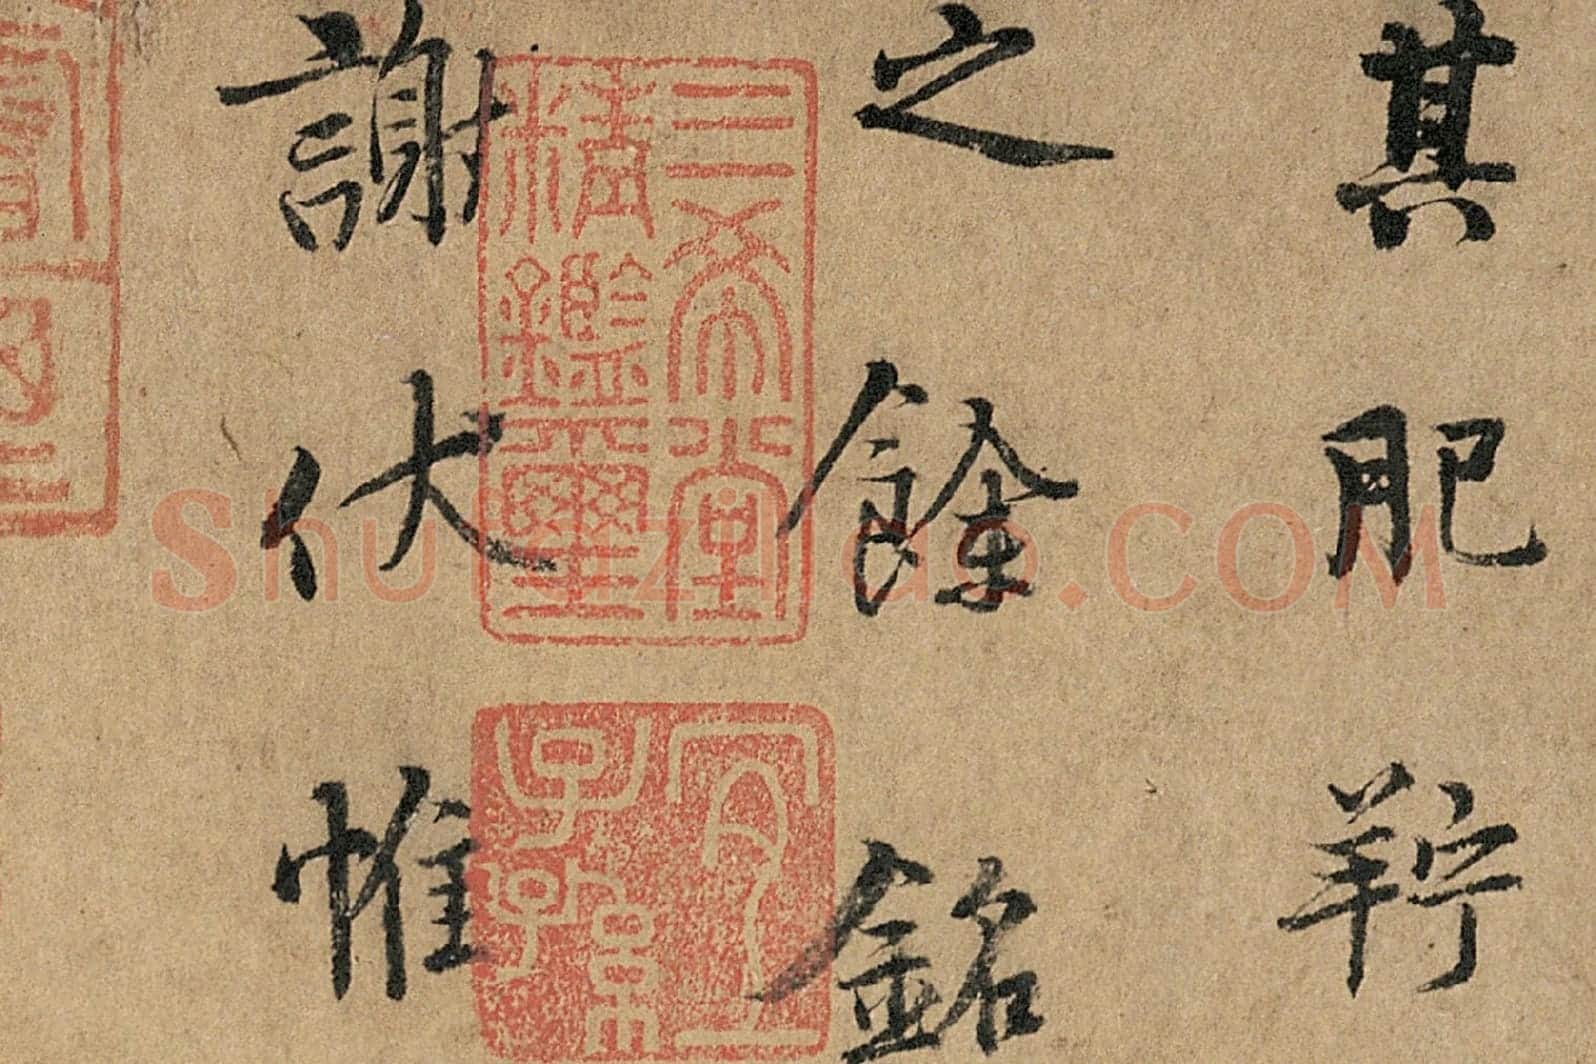 其肥羜
之餘銘
謝伏惟
三希堂
精鑑璽
宜子孫
shufaziliao.com